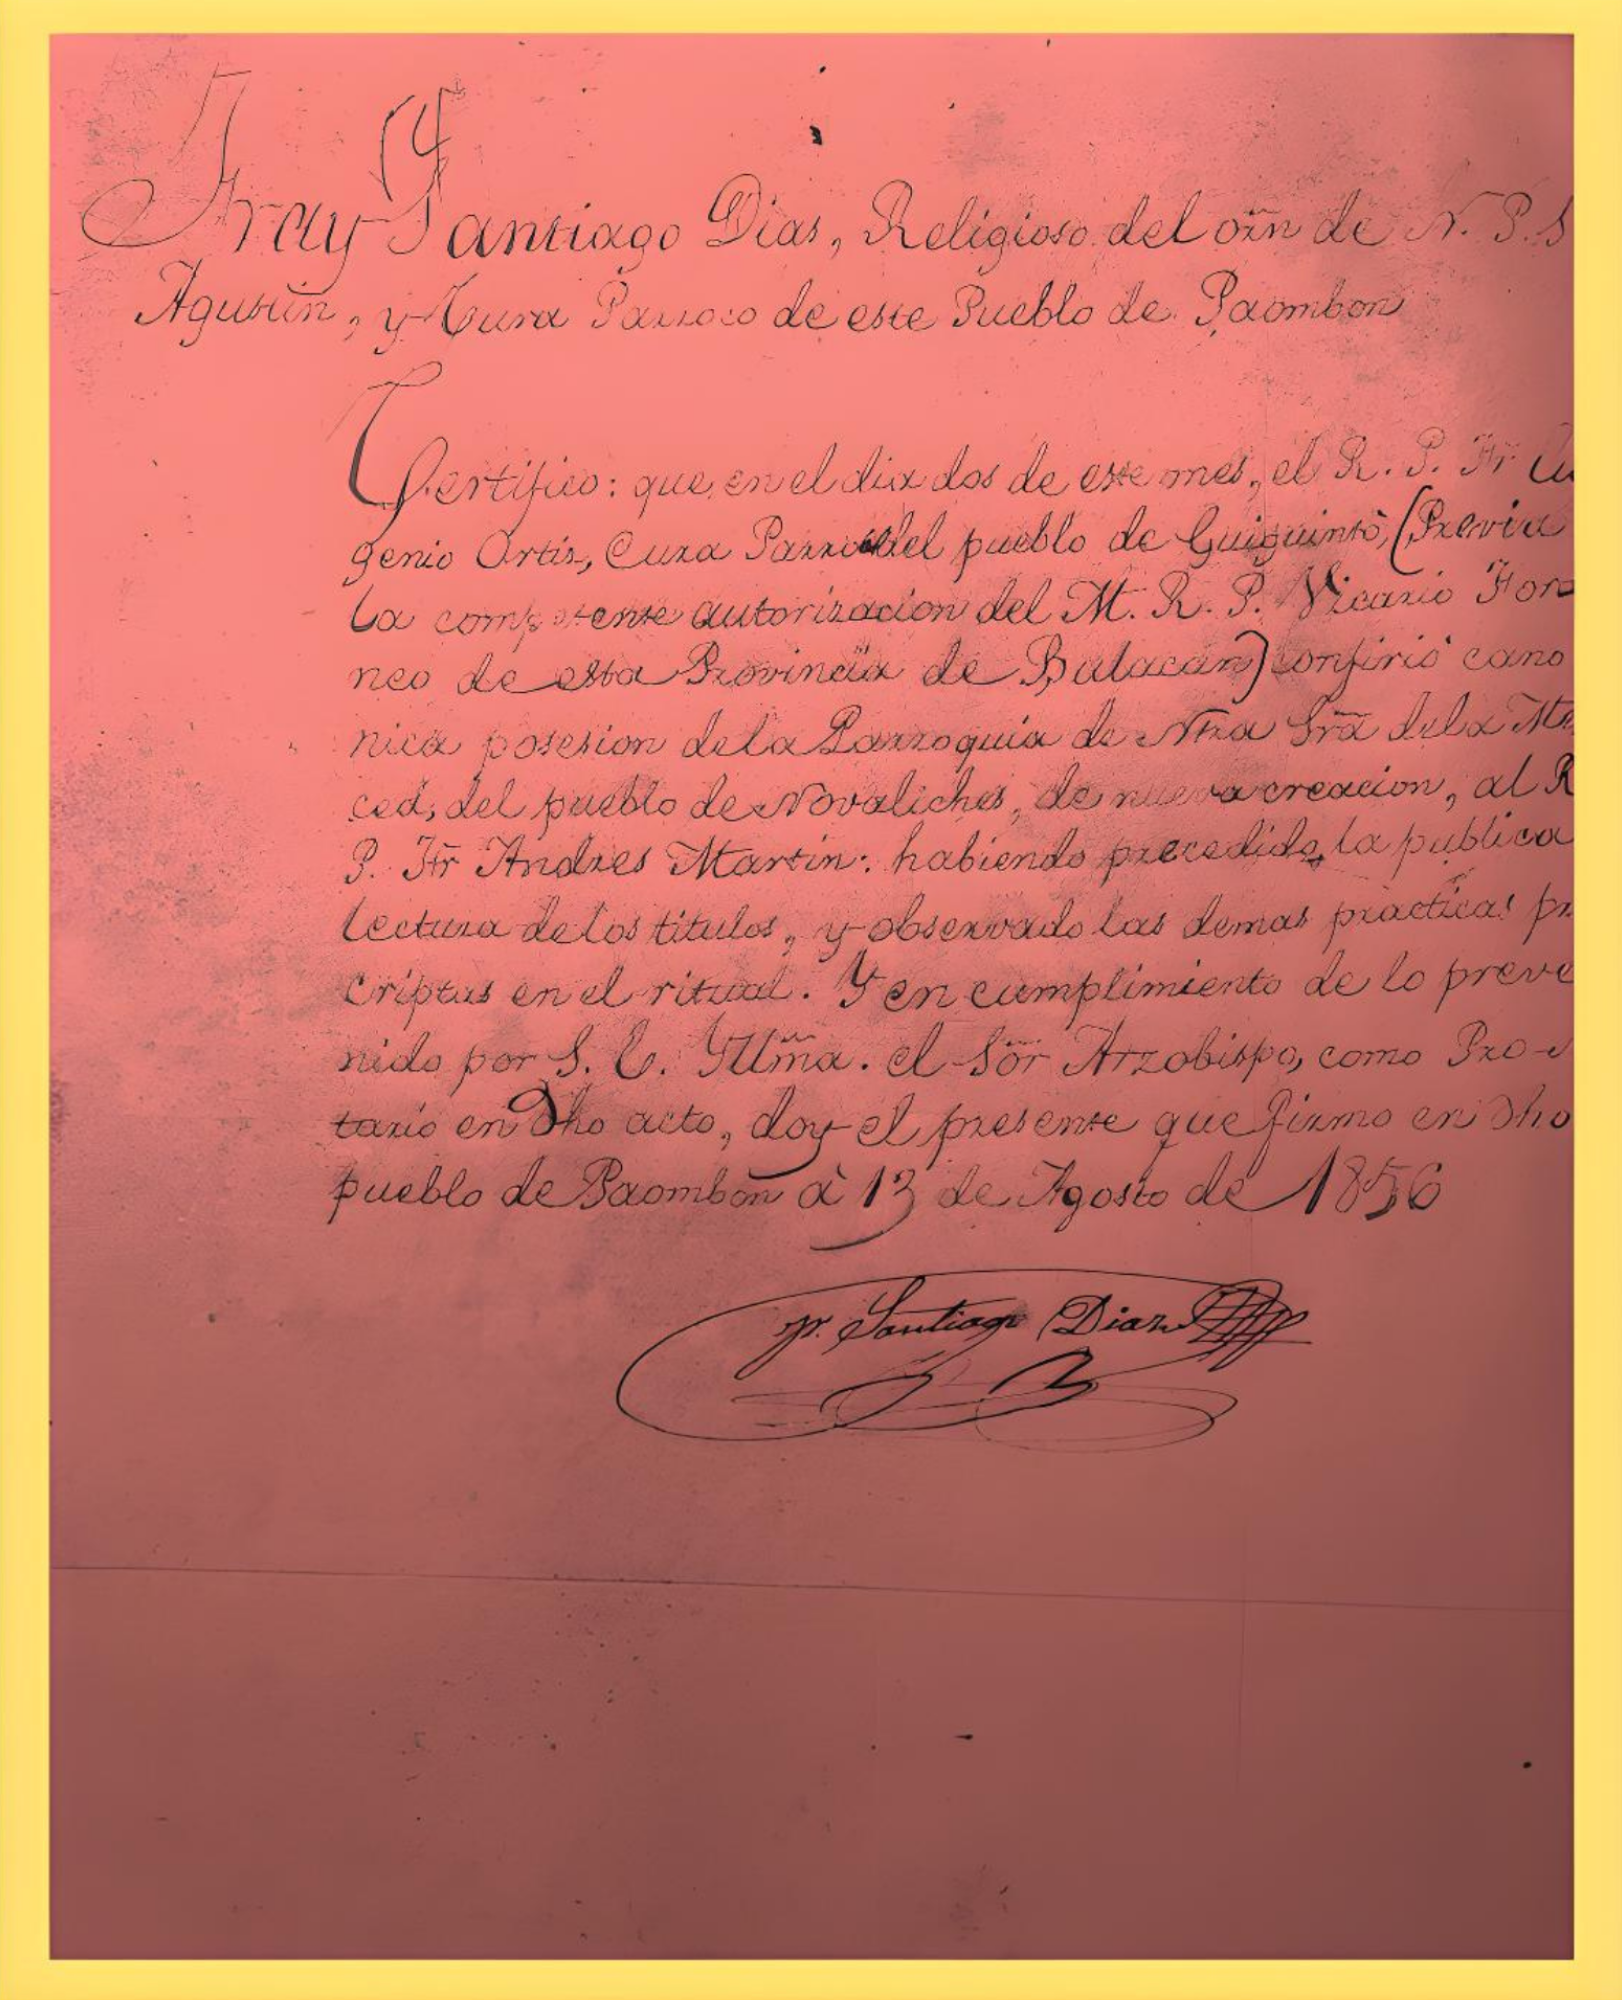 Fray Santiago Dias, Religioso del orn̄ de N. P. S
Agustin, y Cura Parroco de este Pueblo de Paombon
Certifico: que en el dia dos de este mes, el R. P. Fr Eu
genio Ortis, Cura Parroco del pueblo de Guiguinto, (Previa
la competente autorizacion del M. R. P. Vicario Fora
neo de esta Provincia de Bulacan) confirió cano
nica posesion de la Parroquia de Ntra Sra̅ de la Mer
ced, del pueblo de Novaliches, de nueva creacion, al R
P. Fr Andres Martin: habiendo precedido la publica
lectura de los titulos, y observado las demas practicas pr
criptas en el ritual. Y en cumplimiento de lo preve
nido por S. E. Yllm̃a. el Sõr Arzobispo, como Pro-
tario en dho acto, doy el presente que firmo en dho
pueblo de Paombon à 13 de Agosto de 1856
Fr. Santiago Diaz